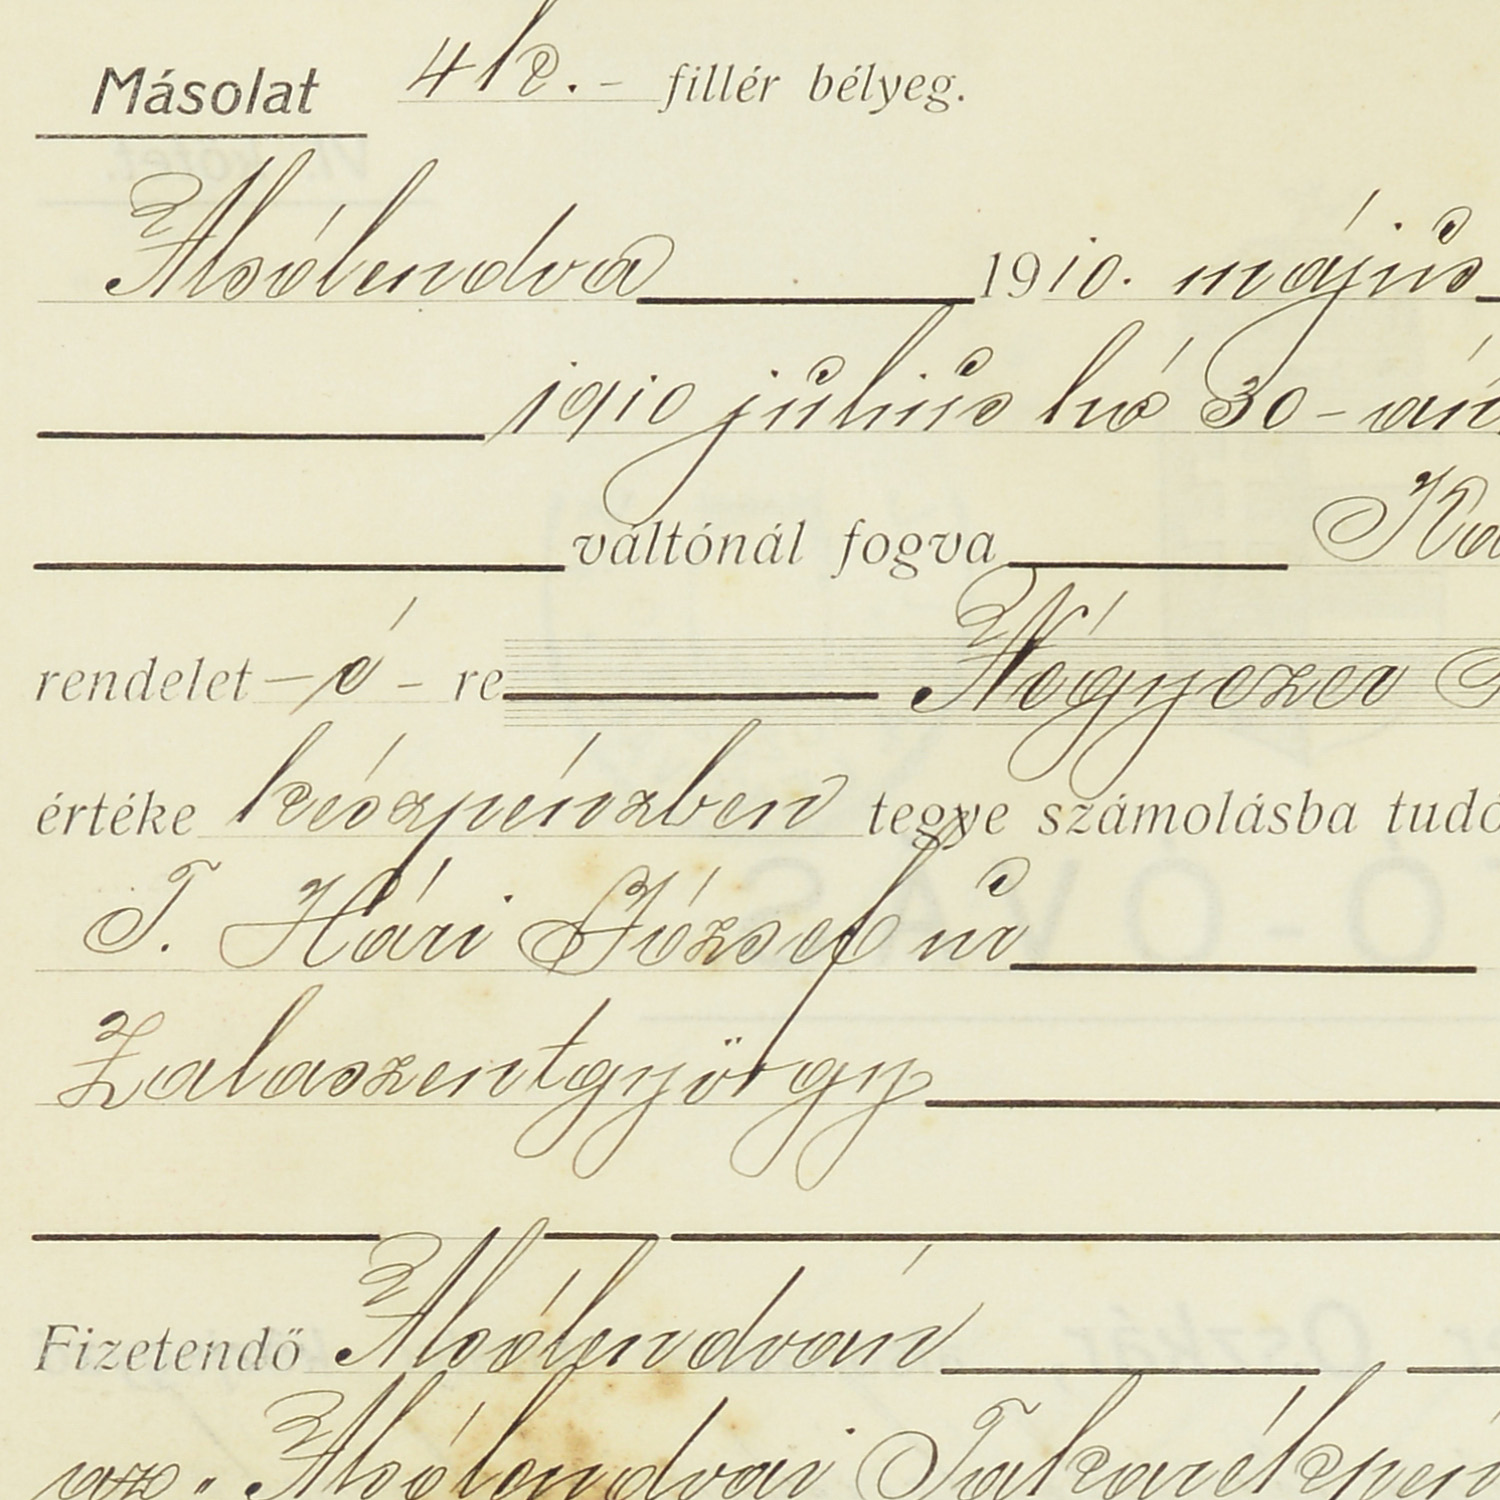 Másolat 4 k. - fillér bélyeg.
Alsólendva 1910. május
1910 július hó 30-án
váltónál fogva
rendelet - ó - re Négyezer
értéke készpénzben tegye számolásba
T. Hári József úr
Zalaszentgyörgy
Fizetendő Alsólendván
az. Alsólendvai